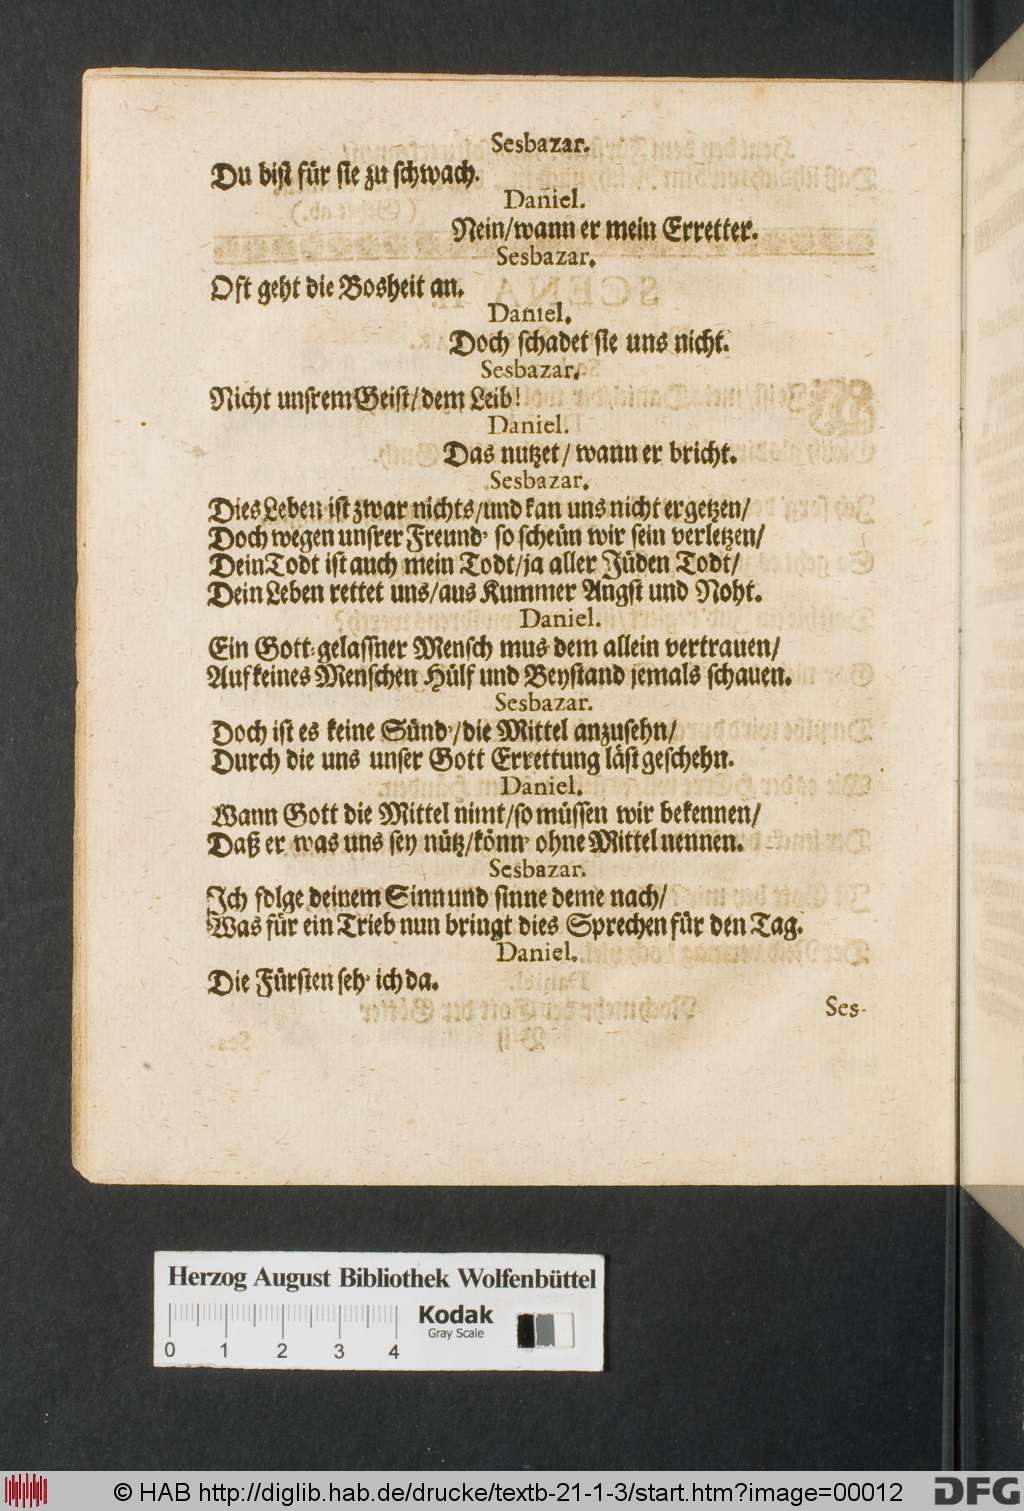 Sesbazar.
Du bist für sie zu schwach.
Daniel.
Nein/wann er mein Erretter.
Sesbazar.
Oft geht die Bosheit an.
Daniel.
Doch schadet sie uns nicht.
Sesbazar.
Nicht unsrem Geist/dem Leib!
Daniel.
Das nutzet/ wann er bricht.
Sesbazar.
Dies Leben ist zwar nichts/und kan uns nicht ergetzen/
Doch wegen unsrer Freund' so scheün wir sein verletzen/
Dein Todt ist auch mein Todt/ja aller Jüden Todt/
Dein Leben rettet uns/aus Kummer Angst und Noht.
Daniel.
Ein Gott-gelassner Mensch mus dem allein vertrauen/
Auf keines Menschen Hülf und Beystand jemals schauen.
Sesbazar.
Doch ist es keine Sünd'/die Mittel anzusehn/
Durch die uns unser Gott Errettung läst geschehn.
Daniel.
Wann Gott die Mittel nimt/so müssen wir bekennen/
Daß er was uns sey nütz/könn' ohne Mittel nennen.
Sesbazar.
Ich folge deinem Sinn und sinne deme nach/
Was für ein Trieb nun bringt dies Sprechen für den Tag.
Daniel.
Die Fürsten seh' ich da.
Ses-
Herzog August Bibliothek Wolfenbüttel
Kodak
Gray Scale
0 1 2 3 4
© HAB http://diglib.hab.de/drucke/textb-21-1-3/start.htm?image=00012
DFG